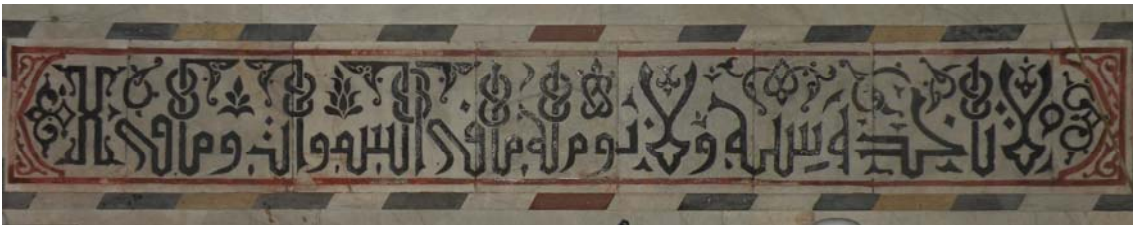 لا تاخذه سنة ولا نوم له ما في السموات وما في الا